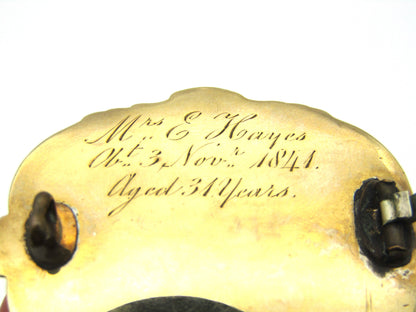 Mrs E Hayes
Obt. 3, Novr. 1841.
Aged 31 Years.